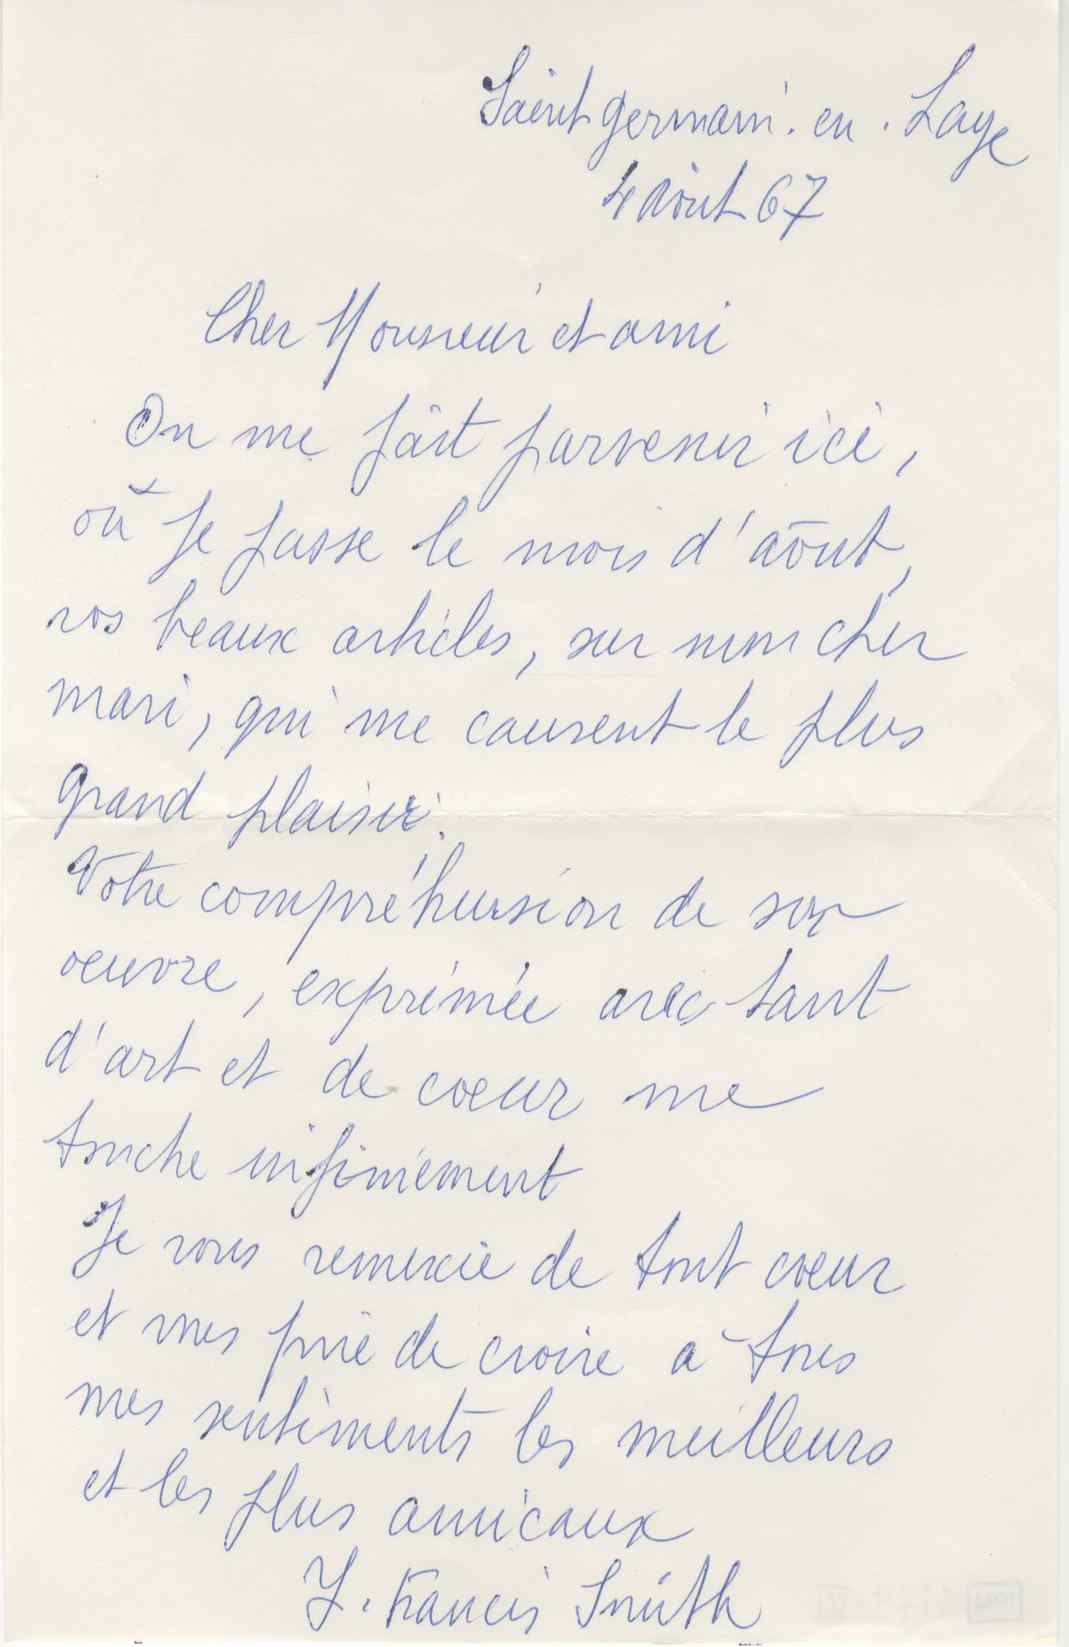 Saint germain. en. Laye
4 août 67
Cher Monsieur et ami
On me fait parvenir ici,
où je passe le mois d'août,
vos beaux articles, sur mon cher
mari, qui me causent le plus
grand plaisir.
Votre compréhension de son
oeuvre, exprimée avec tant
d'art et de coeur me
touche infiniement
Je vous remercie de tout coeur
et vous prie de croire à tous
mes sentiments les meilleurs
et les plus amicaux
Y. Francis Smith